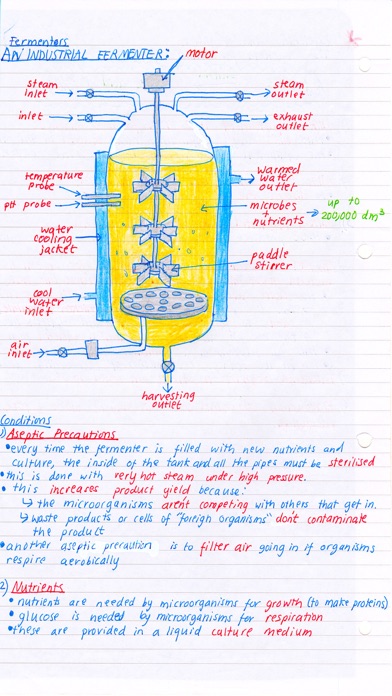 Fermentors
AN INDUSTRIAL FERMENTER:
motor
steam
inlet
steam
outlet
inlet
exhaust
outlet
temperature
probe
warmed
water
outlet
pH probe
microbes
+
nutrients
up to
200,000 dm³
water
cooling
jacket
paddle
stirrer
cool
water
inlet
air
inlet
harvesting
outlet
Conditions
1) Aseptic Precautions
• every time the fermenter is filled with new nutrients and
culture, the inside of the tank and all the pipes must be sterilised
• this is done with very hot steam under high pressure.
• this increases product yield because:
↳ the microorganisms aren't competing with others that get in.
↳ waste products or cells of "foreign organisms" don't contaminate
the product
• another aseptic precaution is to filter air going in if organisms
respire aerobically
2) Nutrients
• nutrients are needed by microorganisms for growth (to make proteins)
• glucose is needed by microorganisms for respiration
• these are provided in a liquid culture medium